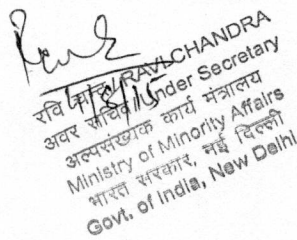 रवि RAVI CHANDRA
अवर सचिव/Under Secretary
अल्पसंख्यक कार्य मंत्रालय
Ministry of Minority Affairs
भारत सरकार, नई दिल्ली
Govt. of India, New Delhi